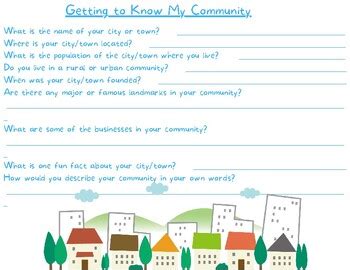 Getting to Know My Community
What is the name of your city or town?
Where is your city/town located?
What is the population of the city/town where you live?
Do you live in a rural or urban community?
When was your city/town founded?
Are there any major or famous landmarks in your community?
What are some of the businesses in your community?
What is one fun fact about your city/town?
How would you describe your community in your own words?